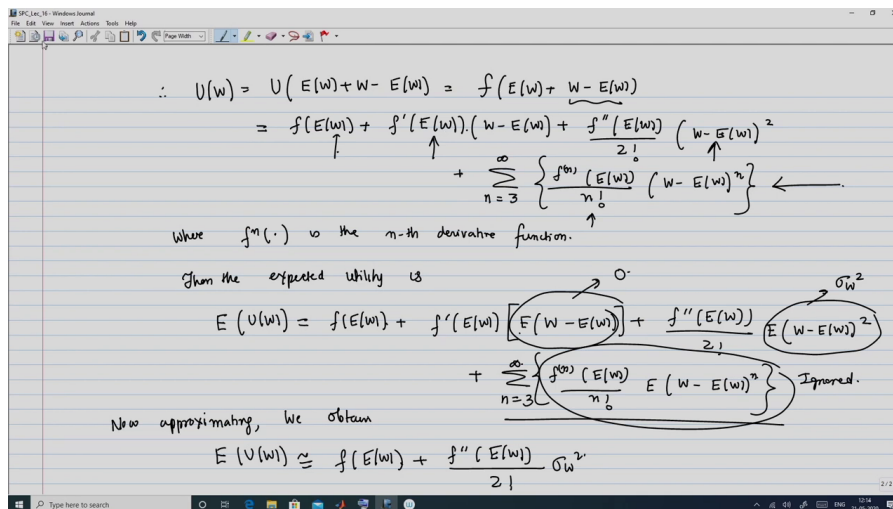 SPC_Lec_16 - Windows Journal
File Edit View Insert Actions Tools Help
Page Width
∴ U(W) = U(E(W)+W-E(W)) = f(E(W)+ W-E(W))
= f(E(W)) + f'(E(W)).(W-E(W)) + f''(E(W))/2! (W-E(W))²
+ ∑_{n=3}^{∞} {f⁽ⁿ⁾(E(W))/n! (W-E(W))ⁿ} ←
Where fⁿ(·) is the n-th derivative function.
Then the expected utility is
0.
σ_W²
E(U(W)) = f(E(W)) + f'(E(W)) [E(W-E(W))] + f''(E(W))/2! E(W-E(W))²
+ ∑_{n=3}^{∞} {f⁽ⁿ⁾(E(W))/n! E(W-E(W))ⁿ} Ignored.
Now approximating, We obtain
E(U(W)) ≅ f(E(W)) + f''(E(W))/2! σ_W²
2/2
Type here to search
ENG
12:14
21-05-2020